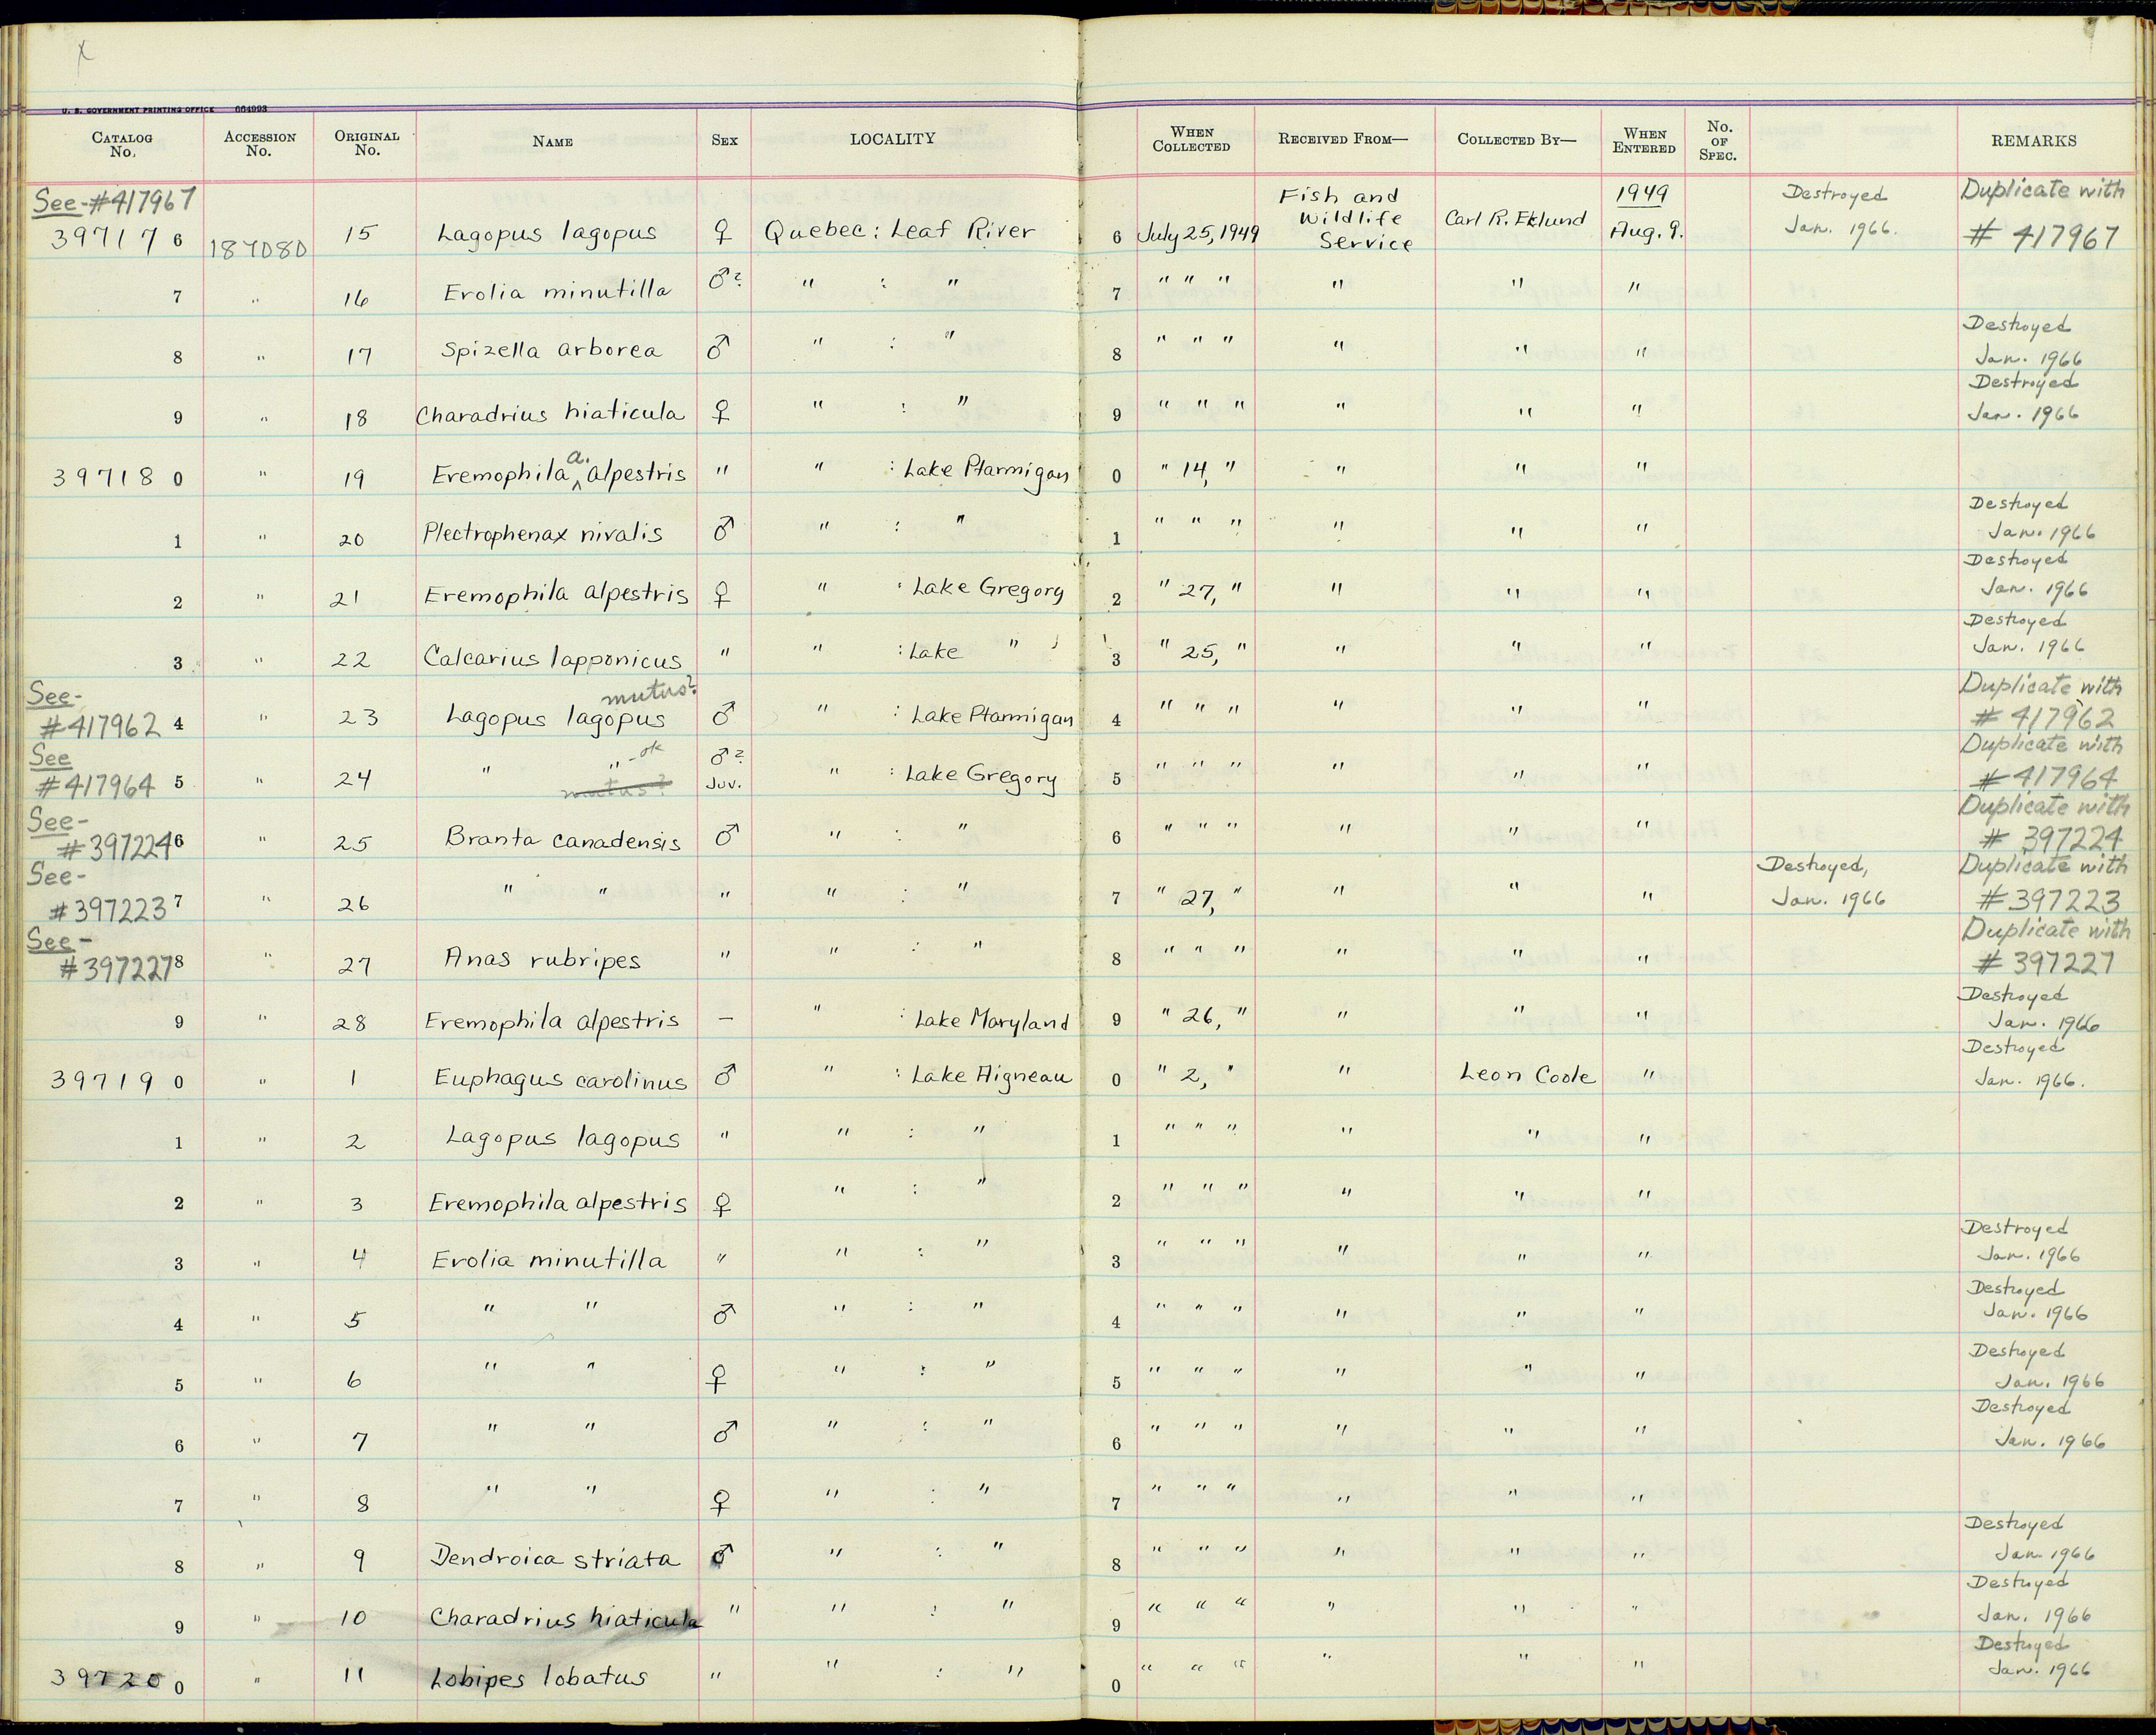 x
U. S. GOVERNMENT PRINTING OFFICE 664993
CATALOG No. ACCESSION No. ORIGINAL No. NAME SEX LOCALITY WHEN COLLECTED RECEIVED FROM— COLLECTED BY— WHEN ENTERED No. OF SPEC. REMARKS
See-#417967
397176 187080 15 Lagopus lagopus ♀ Quebec: Leaf River 6 July 25, 1949 Fish and Wildlife Service Carl R. Eklund 1949 Aug. 9. Destroyed Jan. 1966. Duplicate with # 417967
7 " 16 Erolia minutilla ♂? " : " 7 " " " " " "
8 " 17 Spizella arborea ♂ " : " 8 " " " " " " Destroyed Jan. 1966
9 " 18 Charadrius hiaticula ♀ " : " 9 " " " " " " Destroyed Jan. 1966
397180 " 19 Eremophila a. alpestris " " : Lake Ptarmigan 0 " 14, " " " "
1 " 20 Plectrophenax nivalis ♂ " : " 1 " " " " " " Destroyed Jan. 1966
2 " 21 Eremophila alpestris ♀ " : Lake Gregory 2 " 27, " " " " Destroyed Jan. 1966
3 " 22 Calcarius lapponicus " " : Lake " 3 " 25, " " " " Destroyed Jan. 1966
See- #417962 4 " 23 Lagopus lagopus mutus? ♂ " : Lake Ptarmigan 4 " " " " " " Duplicate with # 417962
See #417964 5 " 24 " " -ok mutus? ♂? Juv. " : Lake Gregory 5 " " " " " " Duplicate with # 417964
See- #397224 6 " 25 Branta canadensis ♂ " : " 6 " " " " " " Duplicate with # 397224
See- #397223 7 " 26 " " " " : " 7 " 27, " " " " Destroyed, Jan. 1966 Duplicate with # 397223
See- #397227 8 " 27 Anas rubripes " " : " 8 " " " " " " Duplicate with # 397227
9 " 28 Eremophila alpestris — " : Lake Maryland 9 " 26, " " " " Destroyed Jan. 1966
397190 " 1 Euphagus carolinus ♂ " : Lake Aigneau 0 " 2, " " Leon Coole " Destroyed Jan. 1966.
1 " 2 Lagopus lagopus " " : " 1 " " " " " "
2 " 3 Eremophila alpestris ♀ " : " 2 " " " " " "
3 " 4 Erolia minutilla " " : " 3 " " " " " " Destroyed Jan. 1966
4 " 5 " " ♂ " : " 4 " " " " " " Destroyed Jan. 1966
5 " 6 " " ♀ " : " 5 " " " " " " Destroyed Jan. 1966
6 " 7 " " ♂ " : " 6 " " " " " " Destroyed Jan. 1966
7 " 8 " " ♀ " : " 7 " " " " " "
8 " 9 Dendroica striata ♂ " : " 8 " " " " " " Destroyed Jan. 1966
9 " 10 Charadrius hiaticula " " : " 9 " " " " " " Destroyed Jan. 1966
397200 " 11 Lobipes lobatus " " : " 0 " " " " " " Destroyed Jan. 1966